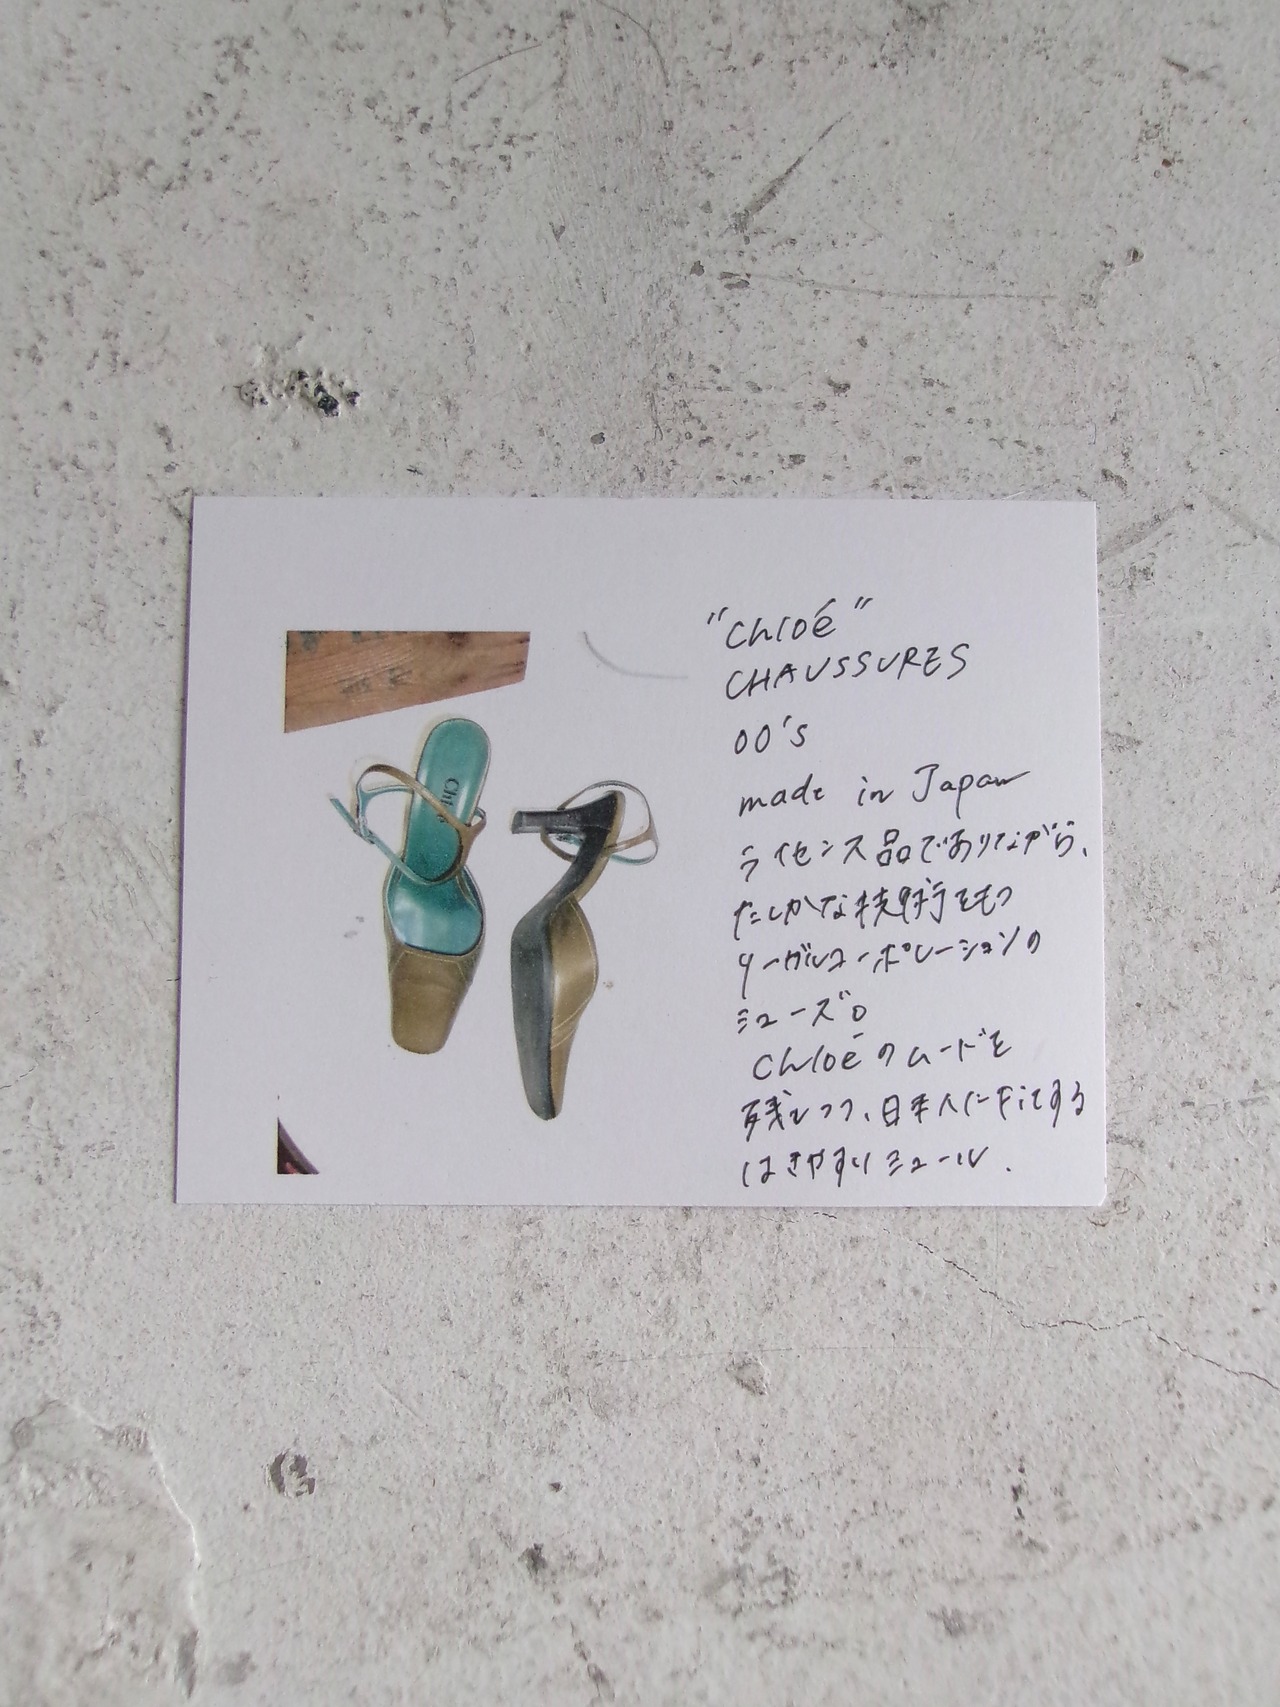 "Chloé"
CHAUSSURES
00's
made in Japan
ライセンス品でありながら、
たしかな技術をもつ
リーガルコーポレーションの
ミューズ。
Chloéのムードを
残しつつ、日本人にFitする
はきやすいミュール.
Chl